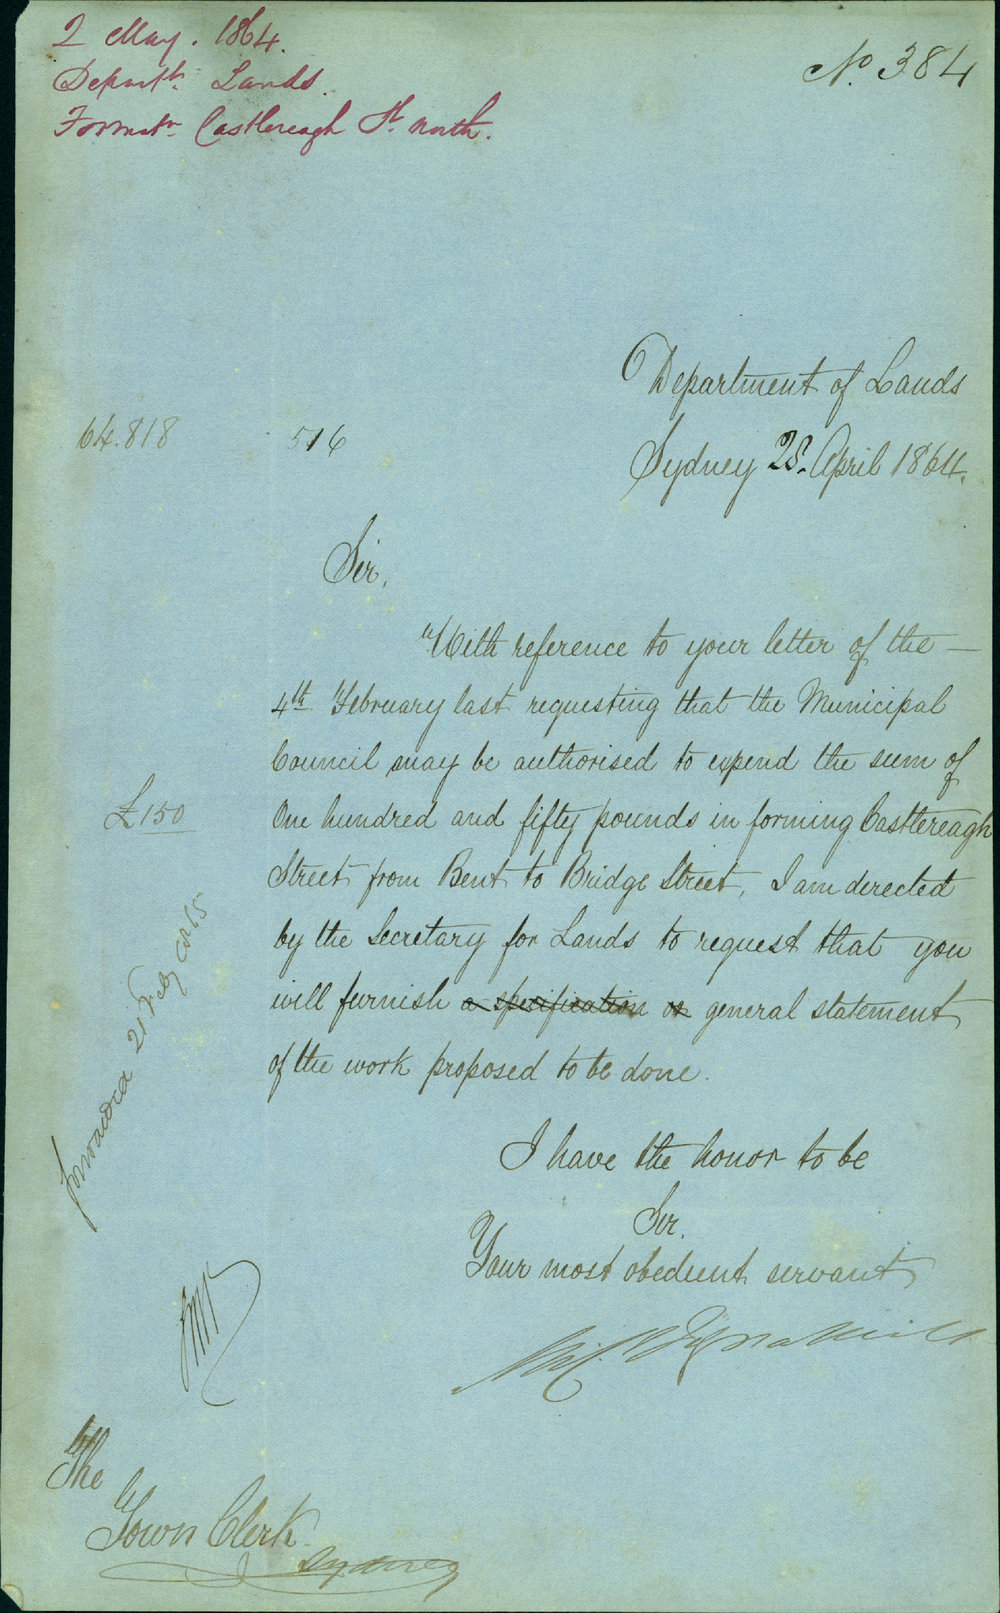 2 May. 1864.
Departt. Lands.
Formatn. Castlereagh St. North.
No. 384
Department of Lands
64.818
516
Sydney 28. April 1864.
Sir,
With reference to your letter of the —
4th February last requesting that the Municipal
Council may be authorised to expend the sum of
£150
One hundred and fifty pounds in forming Castlereagh
Street from Bent to Bridge Street, I am directed
by the Secretary for Lands to request that you
will furnish a specification or general statement
of the work proposed to be done.
forwarded 21
I have the honor to be
Sir.
Your most obedient servant
The
Town Clerk
Sydney